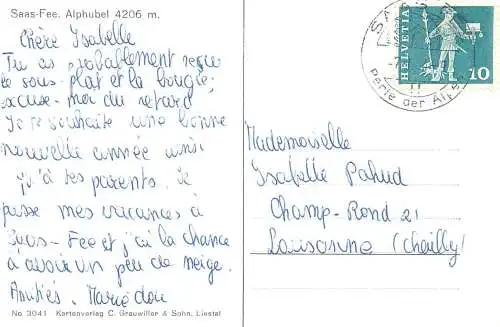 Saas-Fee. Alphubel 4206 m.
Chère Isabelle
Tu as probablement reçu
le sous-plat et la bougie;
excuse-moi du retard
Je te souhaite une bonne
nouvelle année ainsi
qu'à tes parents. Je
passe mes vacances à
Saas-Fee et j'ai la chance
d'avoir un peu de neige.
Amitiés. Mariedou
No 3041 Kartenverlag C. Grauwiller & Sohn, Liestal
HELVETIA
10
Perle der Alpen
Mademoiselle
Isabelle Pahud
Champ-Rond 21
Lausanne (Chailly)